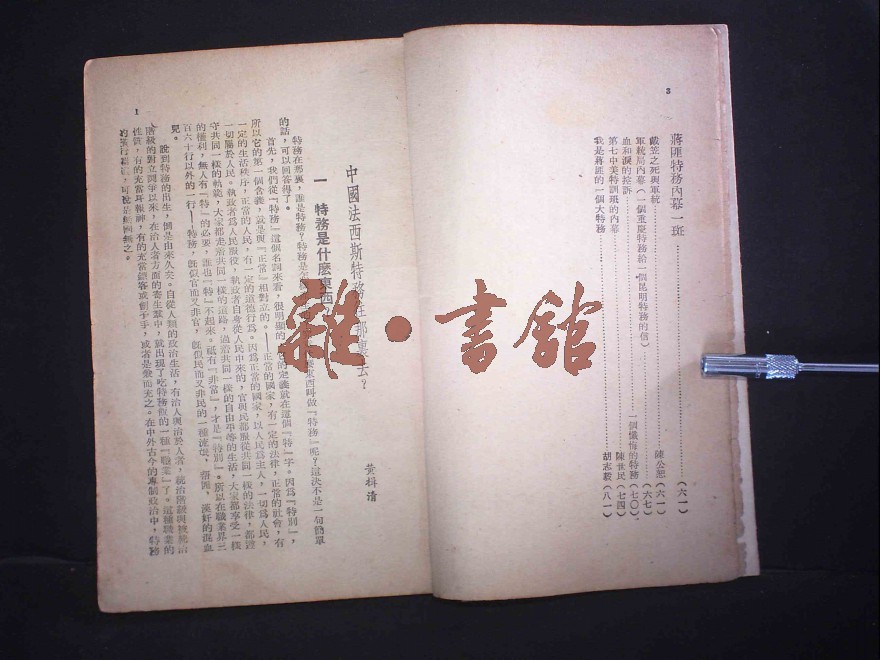 3
蔣匪特務內幕一斑……(六一)
戴笠之死與軍統……陳公恕(六一)
軍統局內幕(一個重慶特務給一個昆明特務的信)……(六七)
血和淚的控訴……一個懺悔的特務(七〇)
第七中美特訓班的內幕……陳世民(七四)
我是蔣匪的一個大特務……胡志毅(八一)
雜·書館
中國法西斯特務往那裏去?
黃楫清
一 特務是什麼東西
特務在那裏,誰是特務?特務是怎 麼東西叫做『特務』呢?這決不是一句簡單
的話,可以回答得了。
首先,我們從『特務』這個名詞來看,很明顯的 的定義就在這個『特』字。因爲『特別』,
所以它的第一個含義,就是與『正常』相對立的。——正常的國家,有一定的法律,正常的社會,有
一定的生活秩序,正常的人民,有一定的道德行爲。因爲正常的國家,以人民爲主人,一切爲人民,
一切屬於人民。執政者爲人民服役,執政者自身從人民中來的,官與民都服從共同一樣的法律,都遵
守共同一樣的軌範,大家都走着共同一樣的道路,過着共同一樣的自由平等的生活,大家都享受一樣
的權利,無人有『特』的必要,誰也『特』不起來。祇有『非常』,才是『特別』。所以在職業界三
百六十行以外的一行——特務,旣似官而又非官,旣似民而又非民的一種流氓,痞匪,漢奸的混血
兒。
說到特務的出生,倒是由來久矣。自從人類的政治生活,有治人與治於人者,統治階級與被統治
階級的對立鬥爭以來,在治人者方面的寄生羣中,就出現了吃特務飯的一種『職業』了。這種職業的
性質,有的充當耳報神,有的充當鏢客或劊子手,或者是兼而充之。在中外古今的專制政治中,特務
的橫行猖獗,可說是無國無之。
1